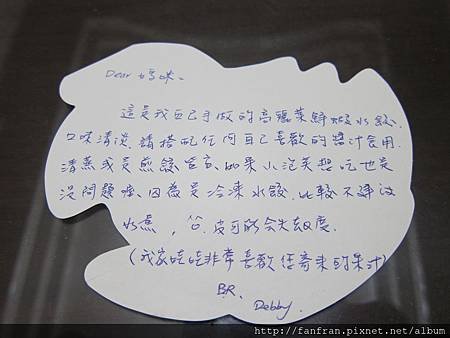 Dear 媽咪、
這是我自己手做的高麗菜鮮蝦水餃、
口味清淡、請搭配任何自己喜歡的醬汁食用、
清蒸或是煎餃皆宜、如果小泡芙想吃也是
沒問題、因為是冷凍水餃、比較不建議
水煮，皮可能會失敗.
(我家吃吃非常喜歡你寄來的果汁)
BR、
Debby.
http://fanfran.pixnet.net/album